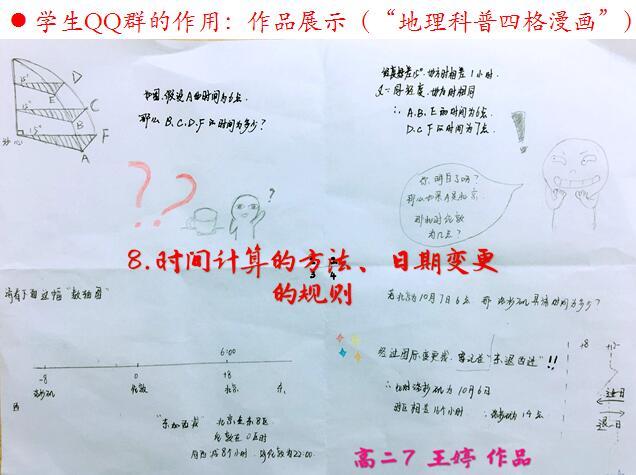 ● 学生QQ群的作用：作品展示（“地理科普四格漫画”）
如图，假设A的时间为6点，
那么B、C、D、F的时间为多少？
15°
D
E
15°
C
B
15°
F
A
地心
经度相差15°，地方时相差1小时．
又∵同经度，地方时相同
∴ A、B、E的时间为6点
D、C、F的时间为7点．
？？
?
你明白了吗？
那么如果A是北京，
那和时伦敦
为几点？
8.时间计算的方法、日期变更
的规则
3 4
请看下面这幅“数轴图”
6:00
-8
0
+8
洛杉矶
伦敦
北京
东
西
“东加西减” 北京在东8区
伦敦在0区时
向西减8个小时 ∴伦敦为22:00．
若北京为10月7日6点 那洛杉矶具体时间为多少？
经过国际变更线，需记住“东退西进”!!
∴此时洛杉矶为10月6日
时区相差16个小时 ∴洛杉矶为14点
+8
+12
进一日
退一日
高二7 王婷 作品